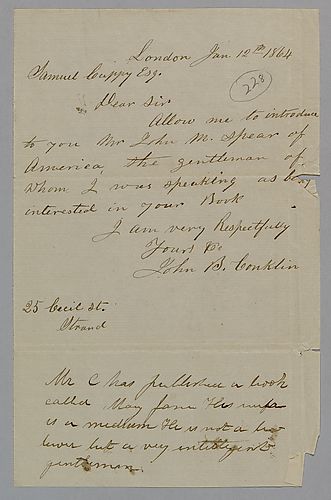 London Jan. 12th 1864
228
Samuel Guppy Esq.
Dear Sir
Allow me to introduce
to you Mr John M. Spear of
America, the gentleman of
whom I was speaking as being
interested in your Book
I am very Respectfully
Yours &c
John B. Conklin
25 Cecil St.
Strand
Mr C has published a book
called Mary Jane His wife
is a medium He is not a be
liever but a very intelligent
gentleman.